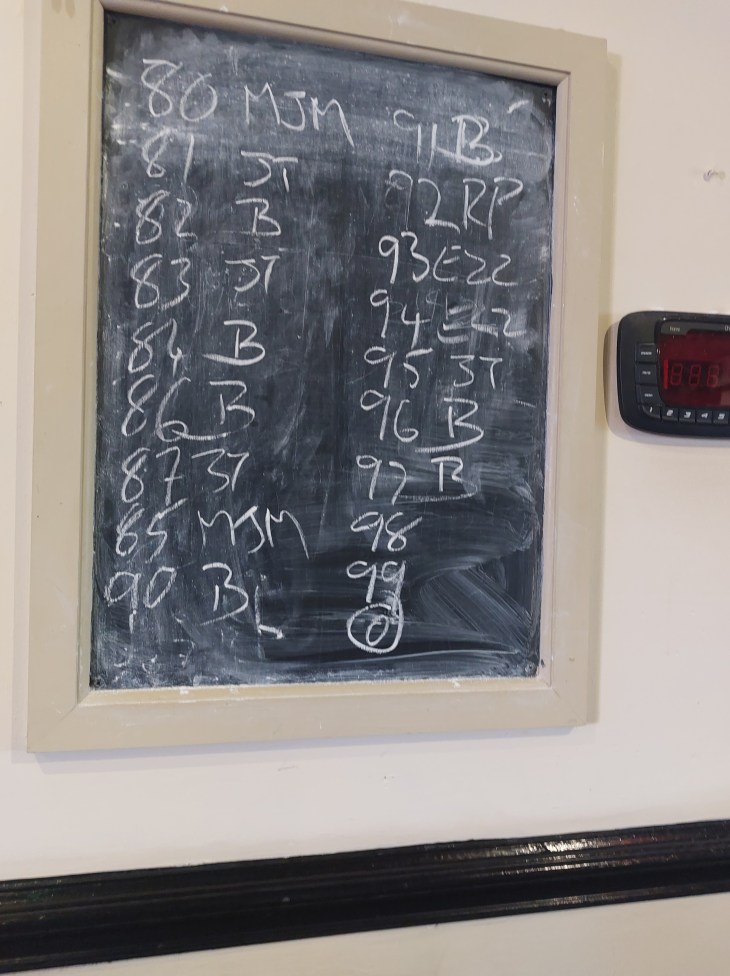 80 MJM
81 JT
82 B
83 JT
84 B
86 B
87 JT
85 MJM
90 BL
91 B
92 RP
93 EZZ
94 EZZ
95 JT
96 B
97 B
98
99
0